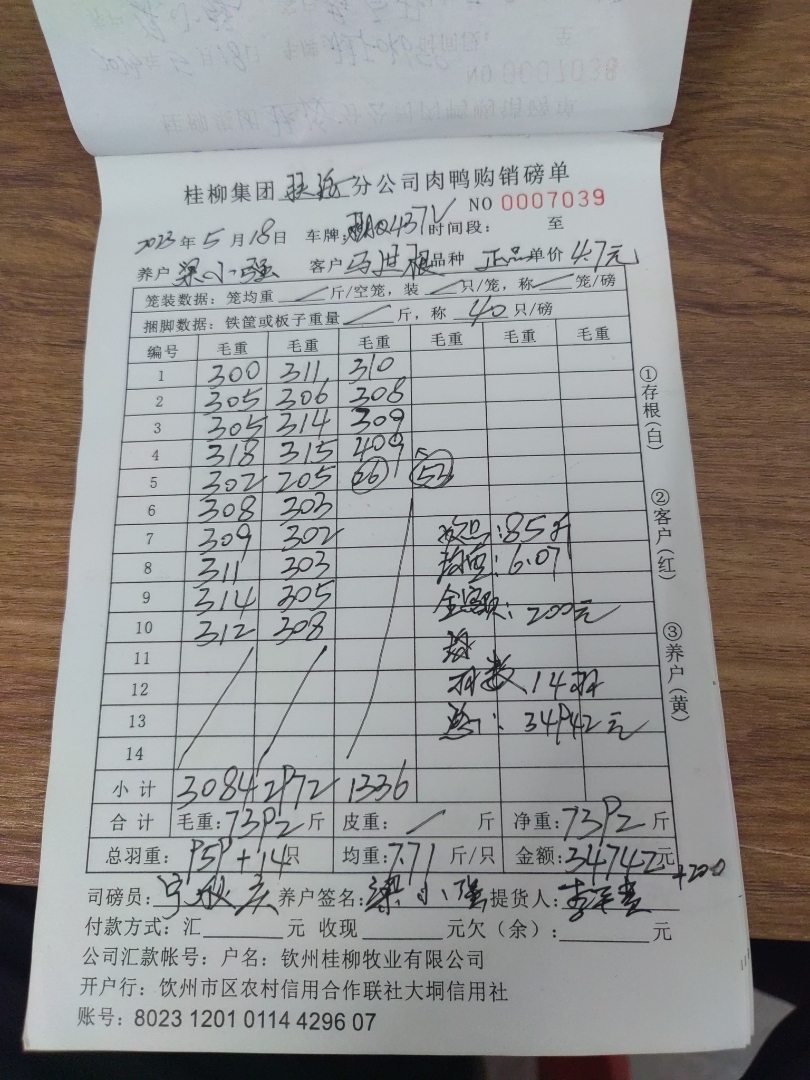 桂柳集团 分公司肉鸭购销磅单
NO 0007039
2023年5月18日 车牌: Q437V 时间段: 至
养户 梁小强 客户 马世根 品种 正品 单价 4.7元
笼装数据: 笼均重 / 斤/空笼, 装 / 只/笼, 称 / 笼/磅
捆脚数据: 铁筐或板子重量 / 斤, 称 40 只/磅
编号 毛重 毛重 毛重 毛重 毛重 毛重
1 300 311 310
2 305 306 308
3 305 314 309
4 318 315 409
5 302 205 (26) (53)
6 308 303
7 309 302 次品:85斤
8 311 303 均重:6.07
9 314 305 金额:200元
10 312 308
11
12 羽数 14羽
13 总: 34942元
14
小计 3084 2972 1336
合计 毛重:7392斤 皮重: / 斤 净重:7392斤
总羽重: 959+14只 均重:7.71斤/只 金额:34742元
+200
司磅员: 养户签名:梁小强 提货人:
付款方式: 汇 元 收现 元欠(余): 元
公司汇款帐号: 户名: 钦州桂柳牧业有限公司
开户行: 钦州市区农村信用合作联社大垌信用社
账号: 8023 1201 0114 4296 07
①存根(白)
②客户(红)
③养户(黄)